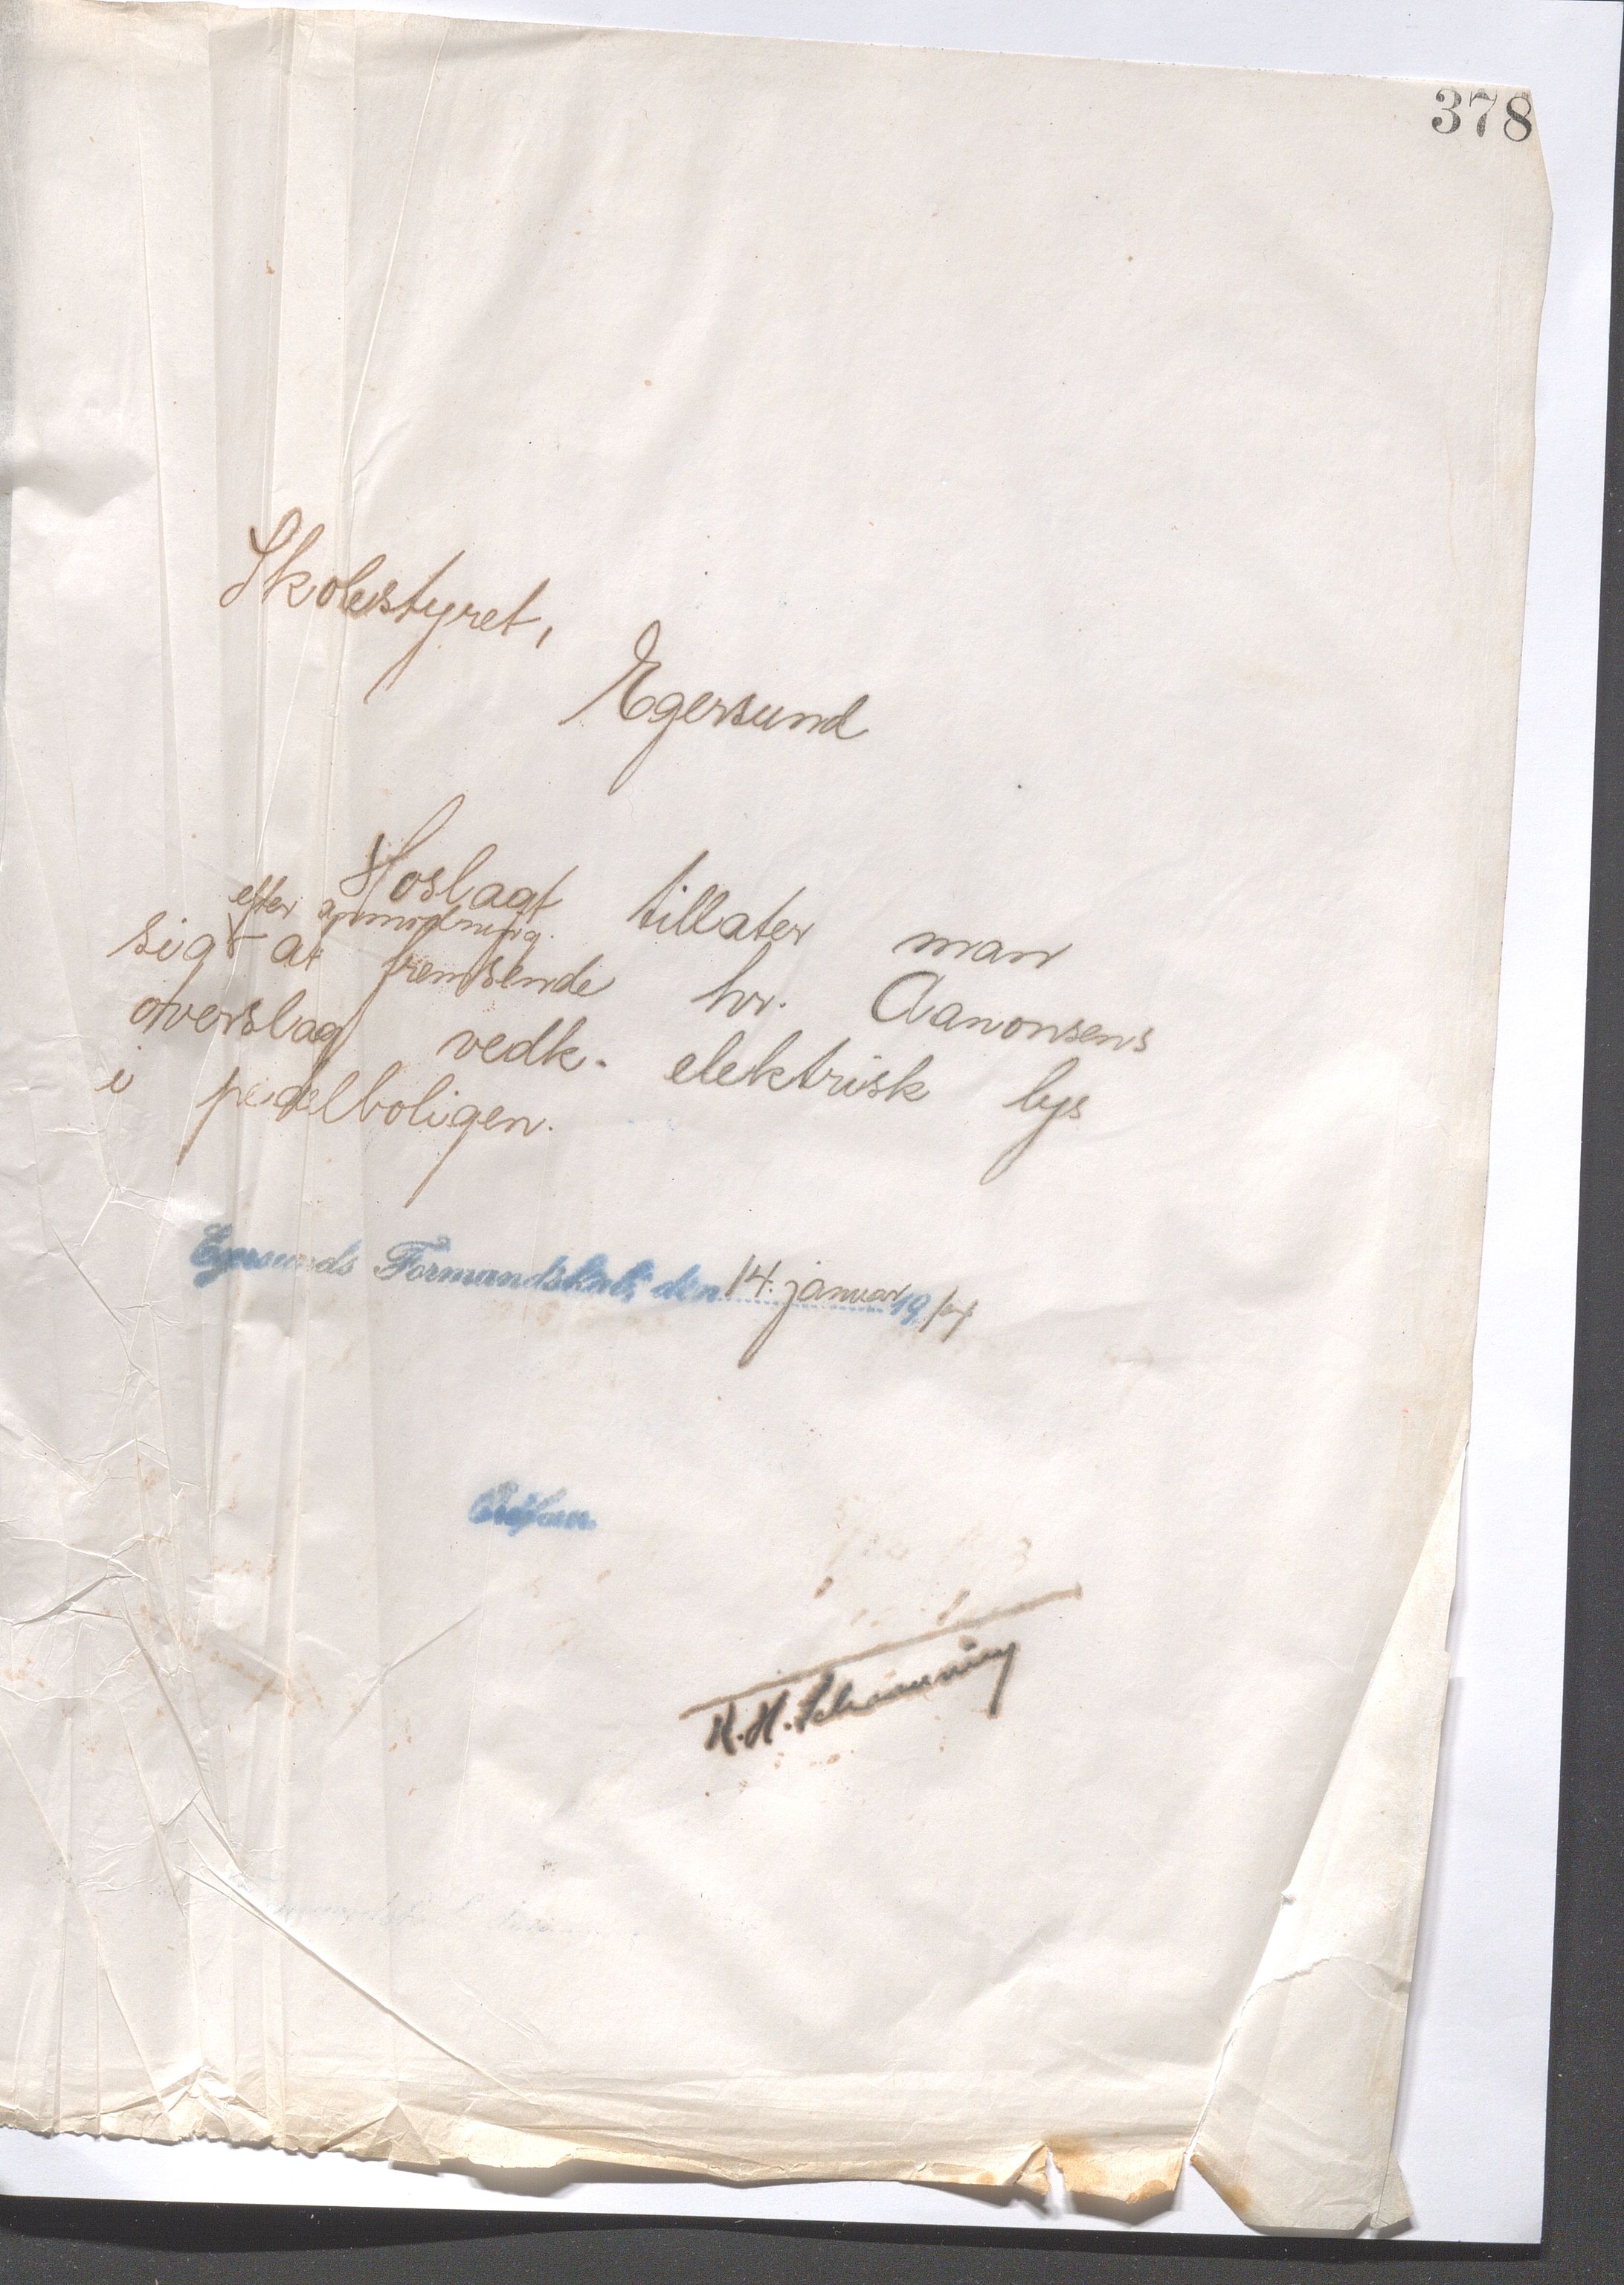 378
Skolestyret,
Egersund
Hoslagt tillater man
efter anmodning.
sig at fremsende hr. Aanonsens
overslag vedk. elektrisk lys
i pedelboligen.
Egersunds Formandskab, den 14. januar 19
Ordfører.
K. H. Schanning